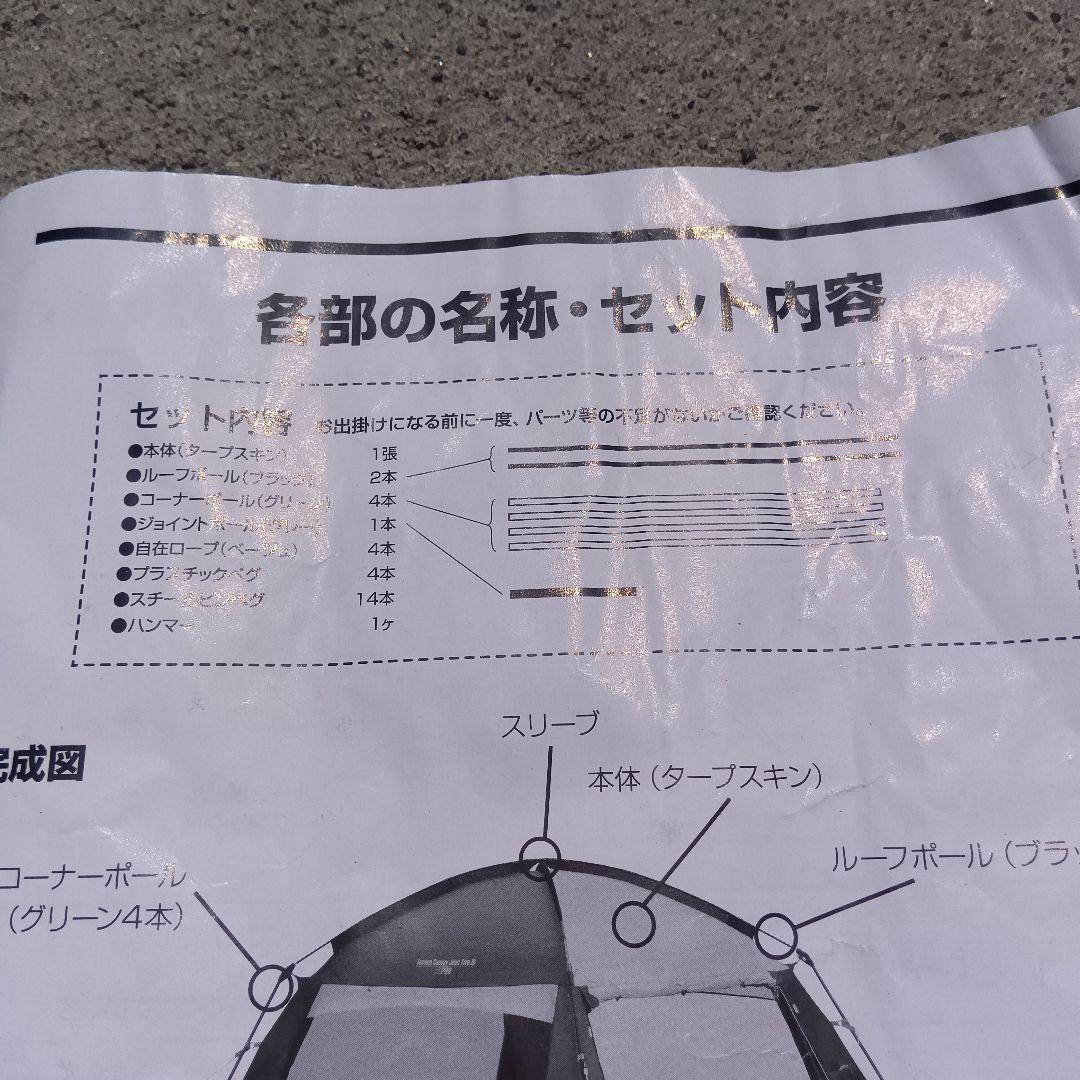 各部の名称・セット内容
セット内容 お出掛けになる前に一度、パーツ等の不足がないかご確認ください。
●本体(タープスキン) 1張
●ルーフポール(ブラック) 2本
●コーナーポール(グリーン) 4本
●ジョイントポール(グレー) 1本
●自在ロープ(ベージュ) 4本
●プラスチックペグ 4本
●スチールピンペグ 14本
●ハンマー 1ヶ
完成図
スリーブ
本体(タープスキン)
ルーフポール(ブラッ
コーナーポール
(グリーン4本)